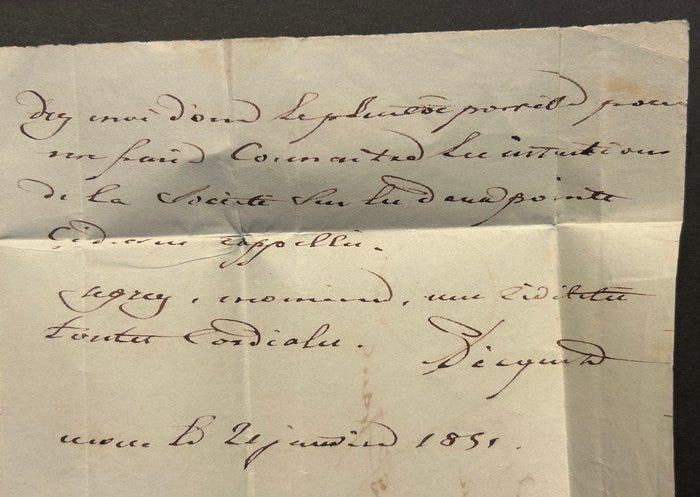 moi donc le plutôt possible pour
me faire connaitre les intentions
de la Société sur les deux points
cidessus rappellés.
agrez, monsieur, mes civilités
toutes cordiales.
le 21 janvier 1851.